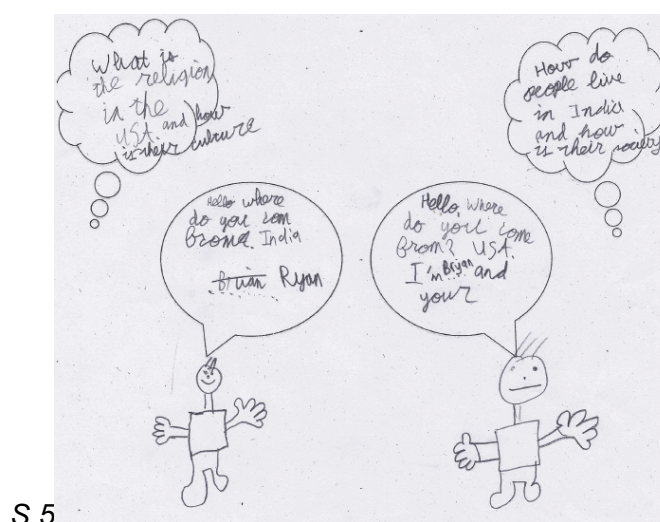 What is
the religion
in the
USA. and how
is their culture
How do
people live
in India
and how
is their society
Hello where
do you com
from India
Brian Ryan
Hello, where
do you come
from? USA.
I'm Bryan and
your
S 5